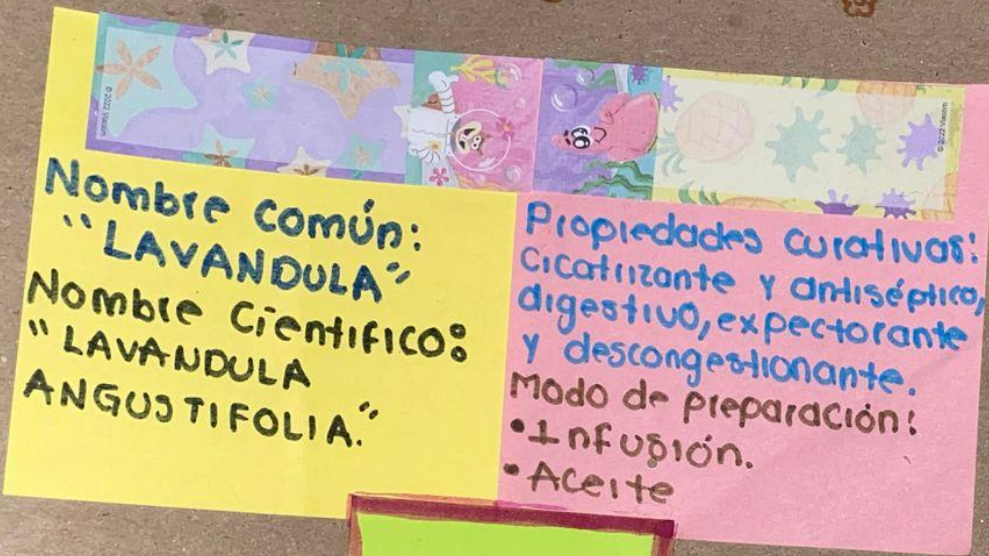 © 2022 Viacom
© 2022 Viacom
Nombre común:
"LAVANDULA"
Nombre Científico:
"LAVANDULA
ANGUSTIFOLIA."
Propiedades curativas:
Cicatrizante y antiséptico,
digestivo, expectorante
y descongestionante.
Modo de preparación:
•Infusión.
•Aceite